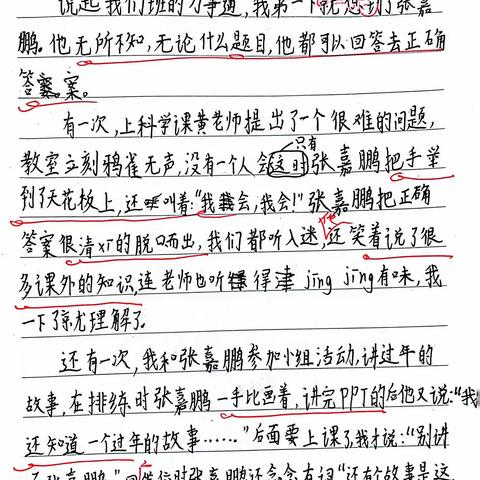 说起我们班的万事通，我第一下就想到了张嘉
鹏。他无所不知，无论什么题目，他都可以回答去正确
答案。
有一次，上科学课黄老师提出了一个很难的问题，
教室立刻鸦雀无声，没有一个人会，只有这时张嘉鹏把手举
到了天花板上，还叫着：“我会，我会！”张嘉鹏把正确
答案很清xī的脱口而出，我们都听入迷，他还笑着说了很
多课外的知识，连老师也听得津jīng jīng有味，我
一下了就理解了。
还有一次，我和张嘉鹏参加小组活动，讲过年的
故事，在排练时张嘉鹏一手比画着，讲完PPT的后他又说：“我
还知道一个过年的故事……”后面要上课了，我才说：“别讲
了张嘉鹏。”回答位时张嘉鹏还念念有词“还有个故事是这